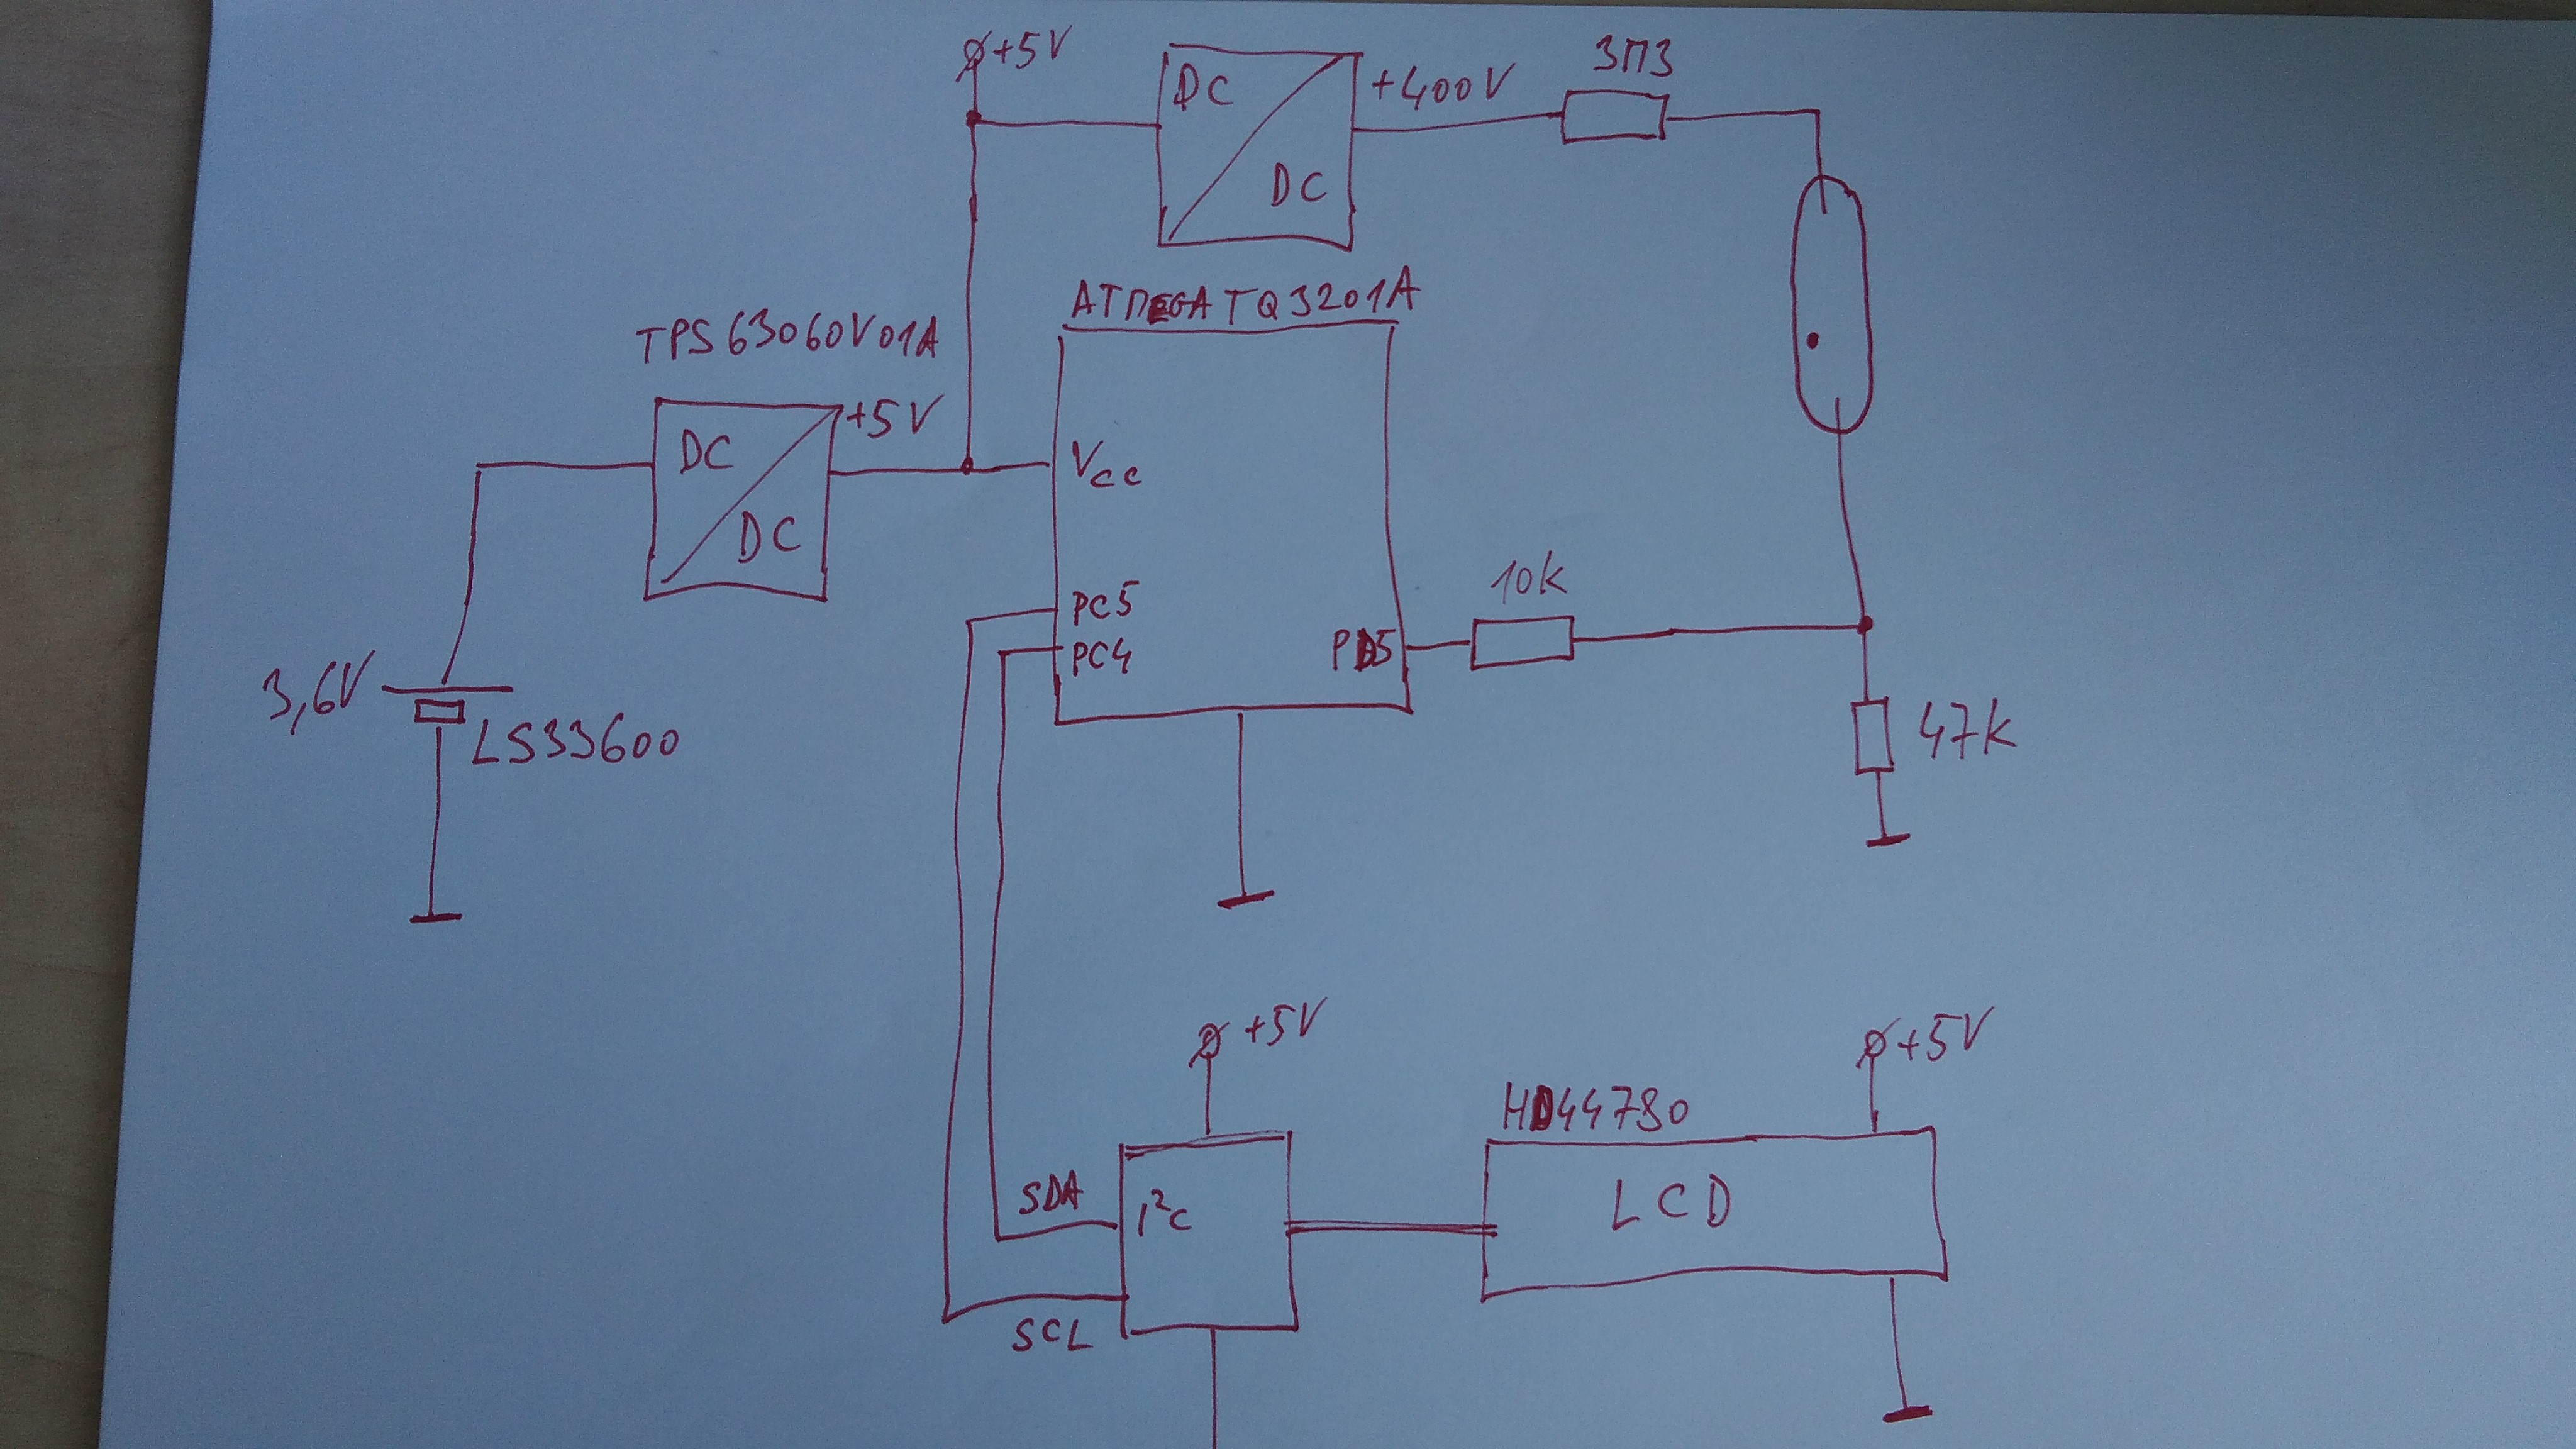 +5V
DC
DC
+400V
3M3
ATMEGA TQ3201A
TPS63060V01A
DC
DC
+5V
Vcc
PC5
PC4
PD5
10k
3,6V
LS33600
47k
+5V
+5V
HD44780
SDA
I²C
LCD
SCL